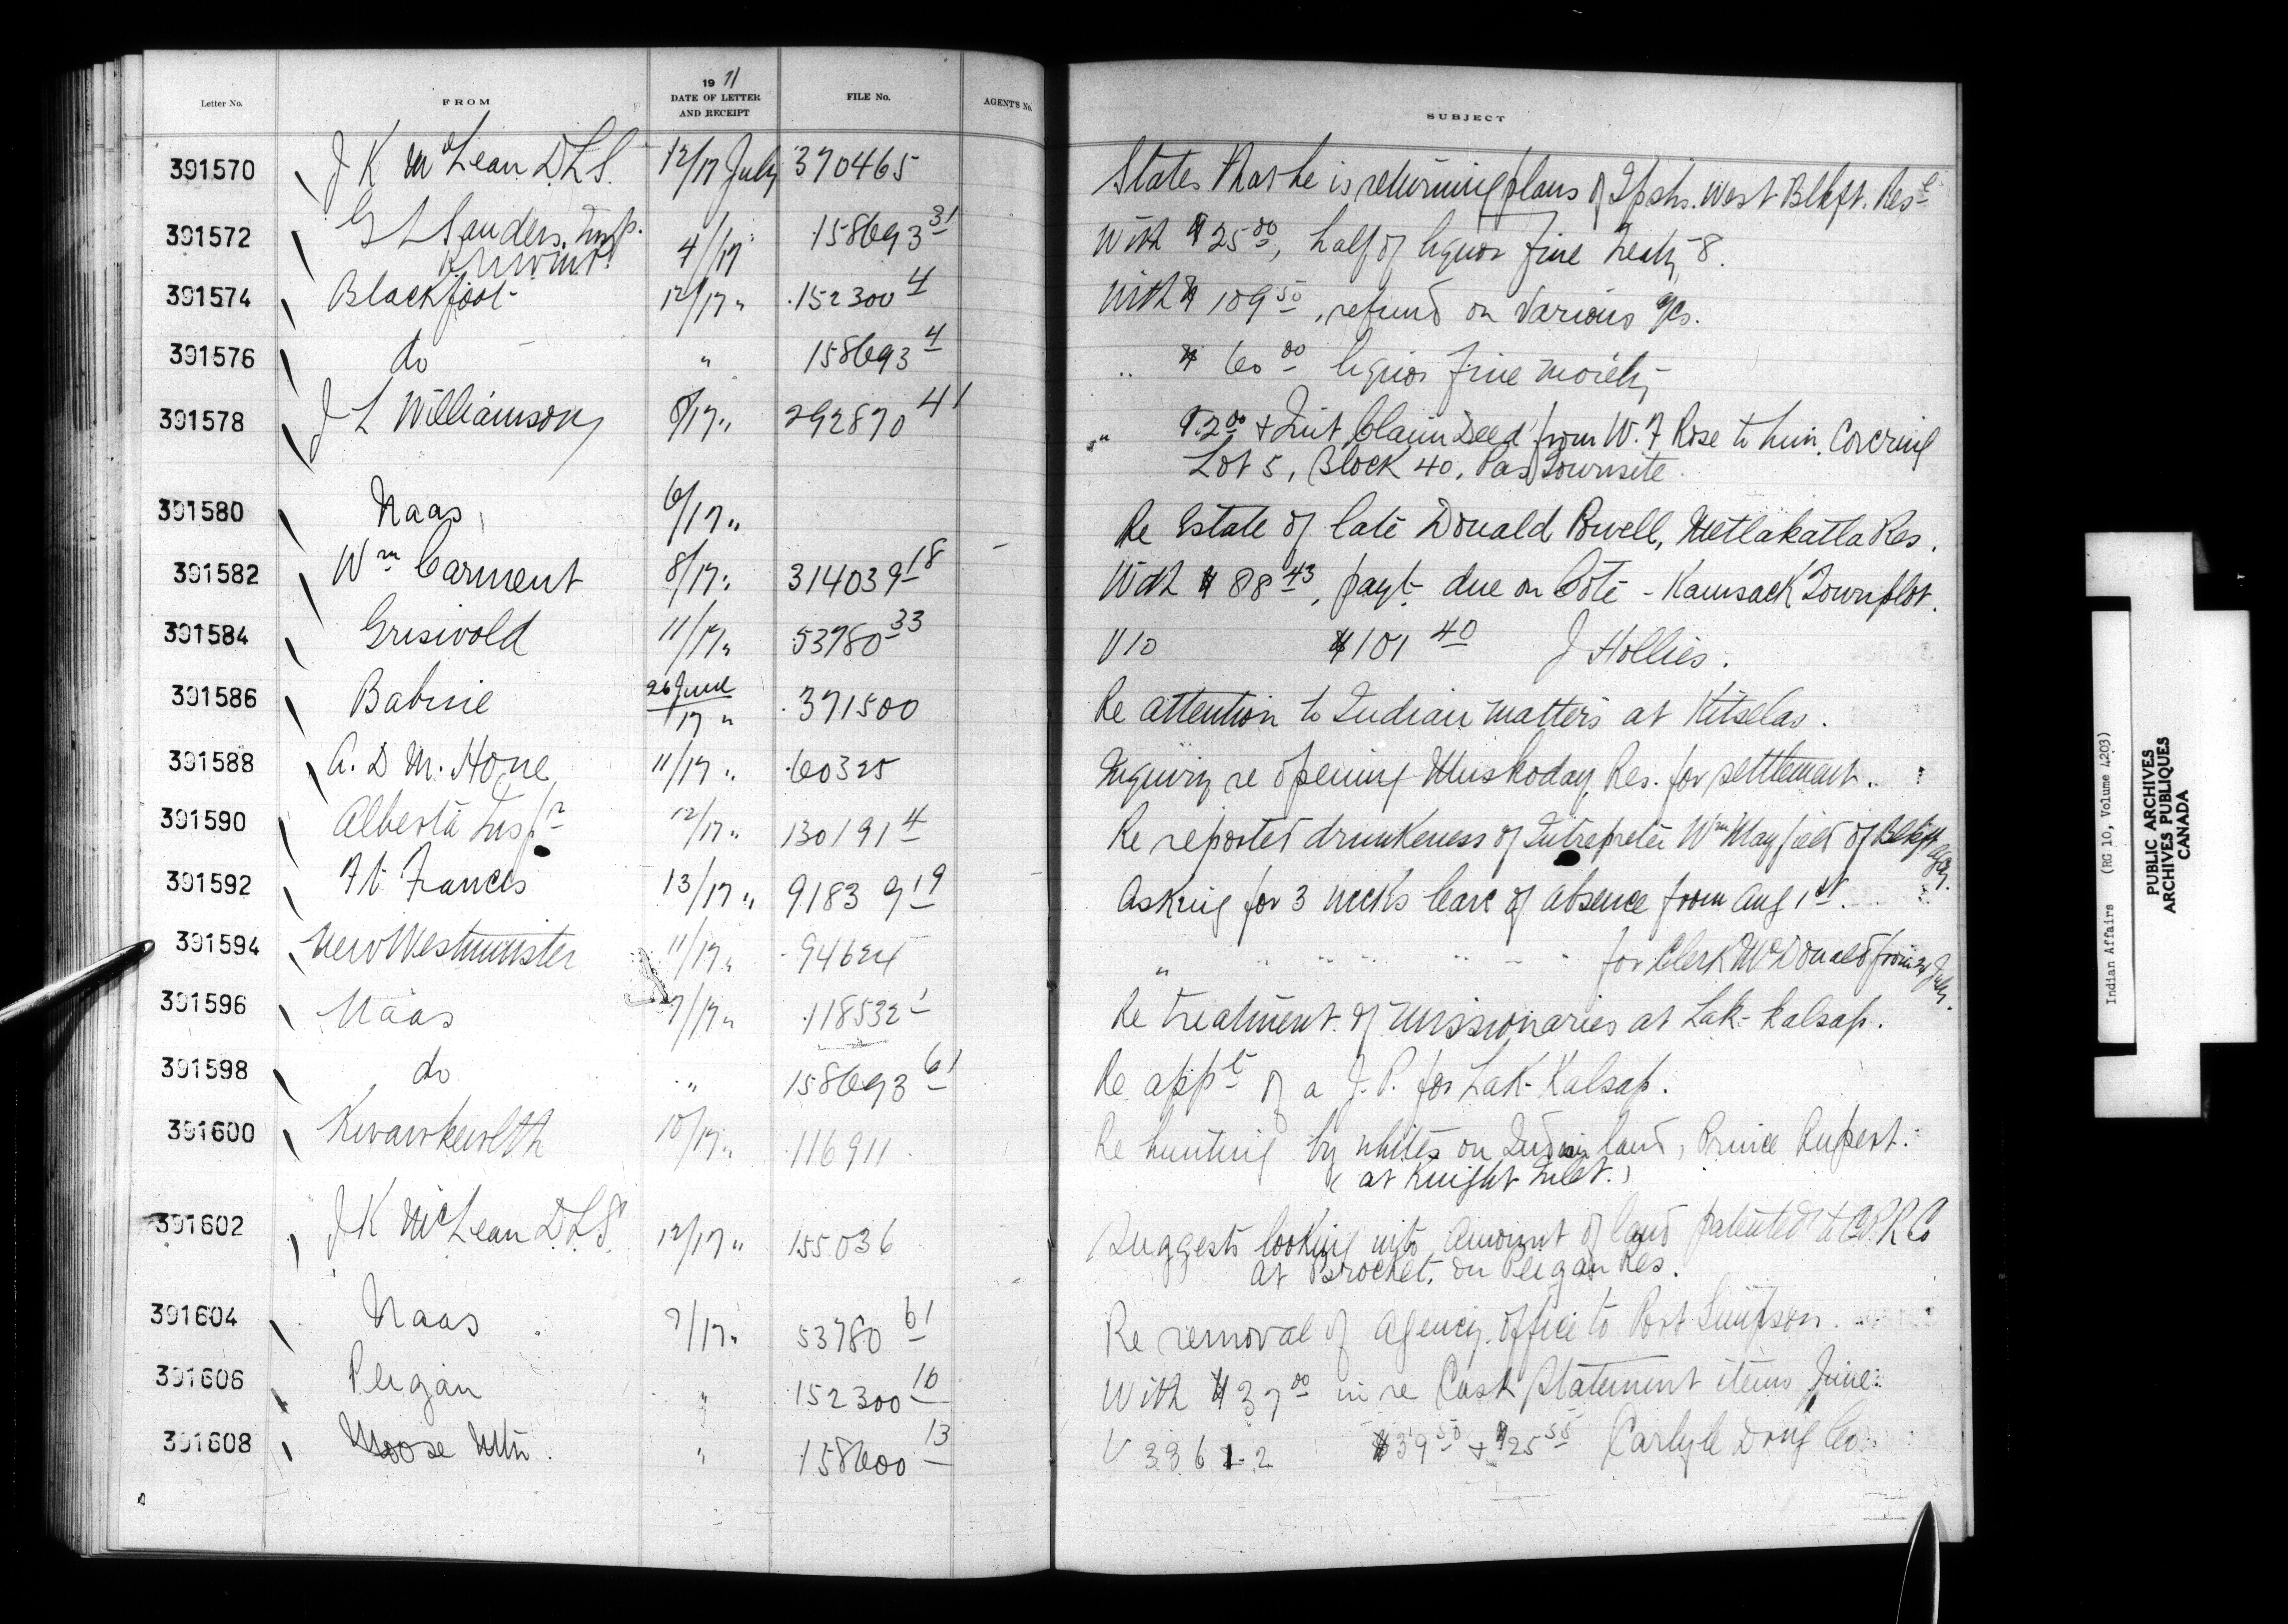 Letter No. FROM 1911 DATE OF LETTER AND RECEIPT FILE No. AGENT'S No. SUBJECT
391570 J K McLean D.L.S. 12/17 July 370465 States that he is returning plans of Tpshs. West Blkft. Rese
391572 G L Sanders, Insp. 4/17 " 158693 31 With $25 00, half of liquor fine Treaty 8.
391574 Blackfoot 12/17 " 152300 4 With $109 50, refund on various a/cs.
391576 do " 158693 4 " $60 00 liquor fine moiety
391578 J L Williamson 8/17 " 292870 41 " $2 00 + Quit Claim Deed from W. F Rose to him. Covering
Lot 5, Block 40, Pas Townsite.
391580 Naas, 6/17 " Re Estate of late Donald Powell, Metlakatla Res.
391582 Wm Carment 8/17 " 314039 18 With $88 43, payt. due on Coté - Kamsack Townplot.
391584 Griswold 11/17 " 53780 33 V 10 $101 40 J Hollies.
391586 Babine 26 June/17 " 371500 Re attention to Indian matters at Kitselas.
391588 A. D M. Hone 11/17 " 60325 Inquiry re opening Muskoday Res. for settlement.
391590 Alberta Inspr 12/17 " 130191 4 Re reported drunkeness of Interpreter Wm Mayfield of Blkft Agcy.
391592 Ft Francis 13/17 " 9183 9 19 Asking for 3 weeks leave of absence from Aug 1st.
391594 New Westminster 11/17 " 94624 " " " " " " " for Clerk McDonald from July.
391596 Naas 7/17 " 118532 1 Re treatment of missionaries at Lak-kalsap.
391598 do " 158693 61 Re appt of a J. P. for Lak-Kalsap.
391600 Kwawkewlth 10/17 " 116911 Re hunting by whites on Indian land, Prince Rupert.
(at Knight Inlet.)
391602 J K McLean D.L.S. 12/17 " 155036 Suggests looking into amount of land patented to C.P.R Co
at Brocket, on Peigan Res.
391604 Naas 7/17 " 53780 61 Re removal of Agency office to Port Simpson.
391606 Peigan " 152300 16 With $37 00 in re Cash Statement items June.
391608 Moose Mtn. " 158600 13 V 3361-2 $39 50 + $25 55 Carlyle Drug Co.
Indian Affairs (RG 10, Volume 4203)
PUBLIC ARCHIVES
ARCHIVES PUBLIQUES
CANADA